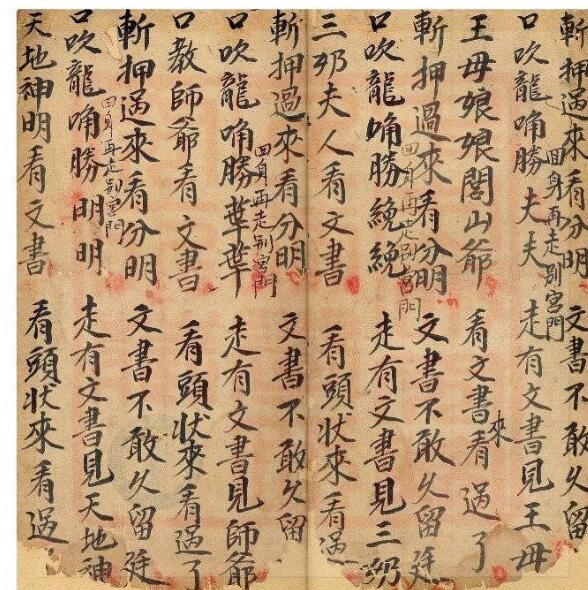 斬押過來看分明 文書不敢久留
口吹龍唃勝夫夫 走有文書見王母
囬身再走別宮門
王母娘娘閭山爷 看文書來看過了
斬押過來看分明 文書不敢久留廷
口吹龍唃勝繞繞 走有文書見三奶
囬身再走別宮門
三奶夫人看文書 看頭状來看過
斬押過來看分明 文書不敢久留
口吹龍唃勝葉葉 走有文書見師爺
囬身再走别宮門
口教師爺看文書 看頭状來看過了
斬押過來看分明 文書不敢久留廷
口吹龍唃勝明明 走有文書見天地神
囬身再走别宮門
天地神明看文書 看頭状來看過